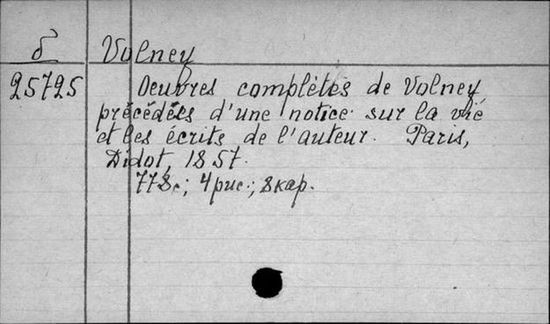 б Volney
25725 Oeuvres complètes de Volney
précédées d'une notice sur la vie
et les écrits de l'auteur. Paris,
Didot, 1857.
778c; 4 рис.; 8 кар.